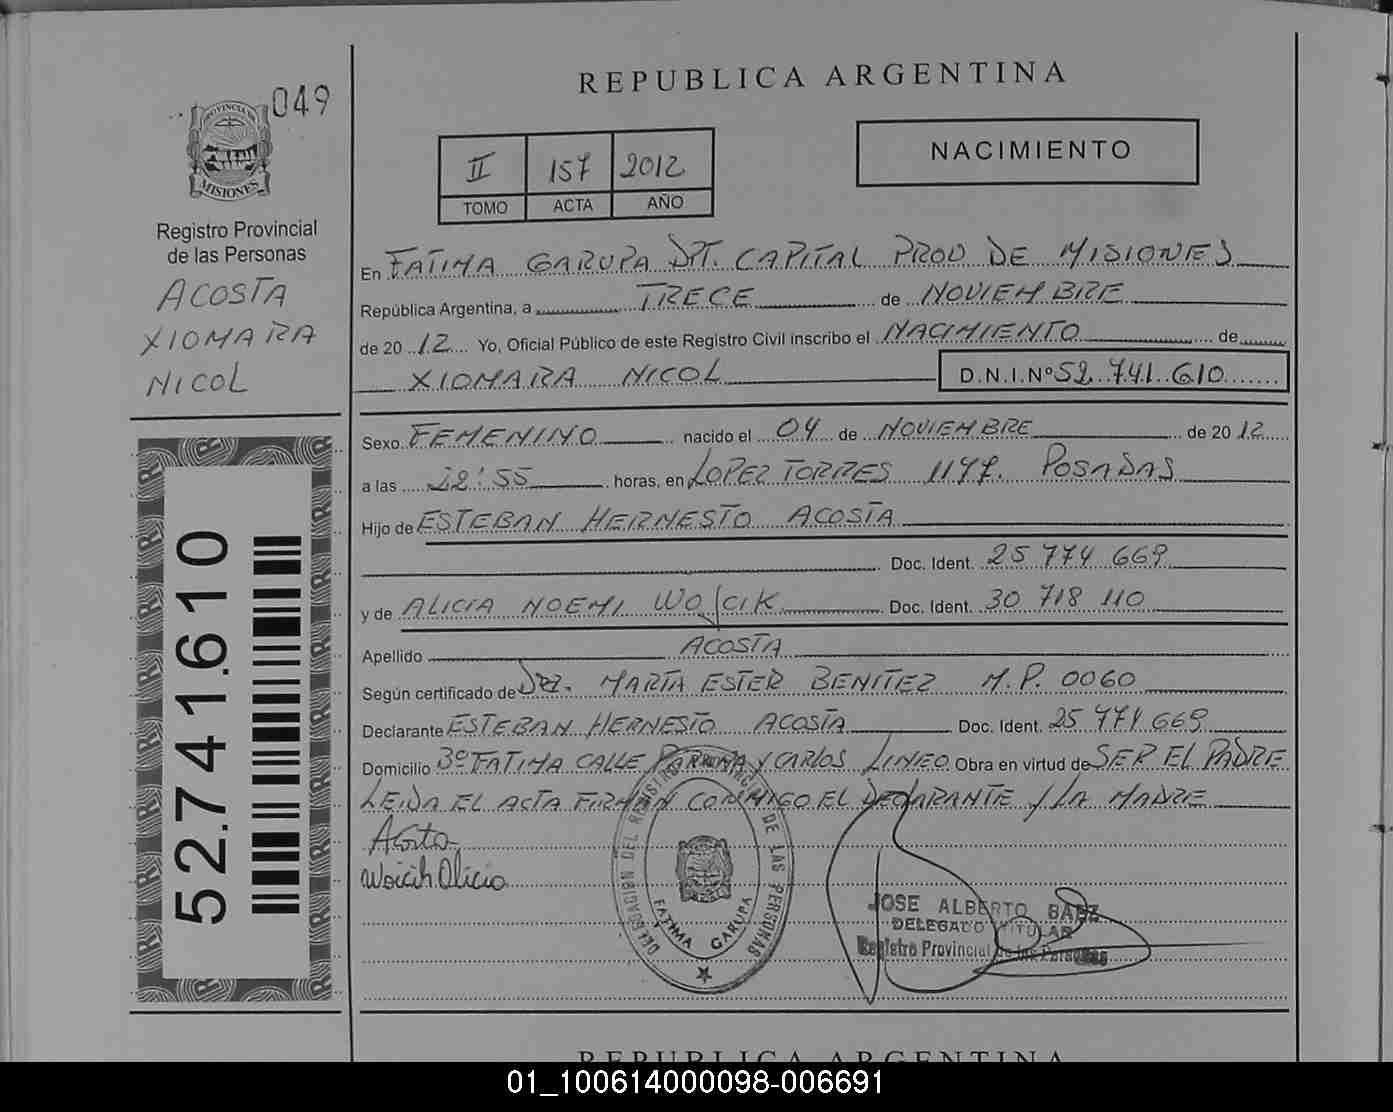 049
PROVINCIA DE
MISIONES
Registro Provincial
de las Personas
ACOSTA
XIOMARA
NICOL
52.741.610
REPUBLICA ARGENTINA
II 157 2012
TOMO ACTA AÑO
NACIMIENTO
En FATIMA GARUPA DPT. CAPITAL PROV DE MISIONES
República Argentina, a TRECE de NOVIEMBRE
de 2012 Yo, Oficial Público de este Registro Civil inscribo el NACIMIENTO de
XIOMARA NICOL D.N.I.Nº 52 741 610
Sexo FEMENINO nacido el 04 de NOVIEMBRE de 2012
a las 22:55 horas, en LOPEZ TORRES 1177. POSADAS
Hijo de ESTEBAN HERNESTO ACOSTA
Doc. Ident. 25 774 669
y de ALICIA NOEMI WOJCIK Doc. Ident. 30 718 110
Apellido ACOSTA
Según certificado de Dra. MARTA ESTER BENITEZ M.P. 0060
Declarante ESTEBAN HERNESTO ACOSTA Doc. Ident. 25 774 669
Domicilio 3º FATIMA CALLE PARANA Y CARLOS LINEO Obra en virtud de SER EL PADRE
LEIDA EL ACTA FIRMAN CONMIGO EL DECLARANTE Y LA MADRE
Acosta
Woicik Alicia
DELEGACION DEL REGISTRO PROVINCIAL DE LAS PERSONAS
FATIMA GARUPA
JOSE ALBERTO BAEZ
DELEGADO TITULAR
Registro Provincial de las Personas
REPUBLICA ARGENTINA
01_100614000098-006691